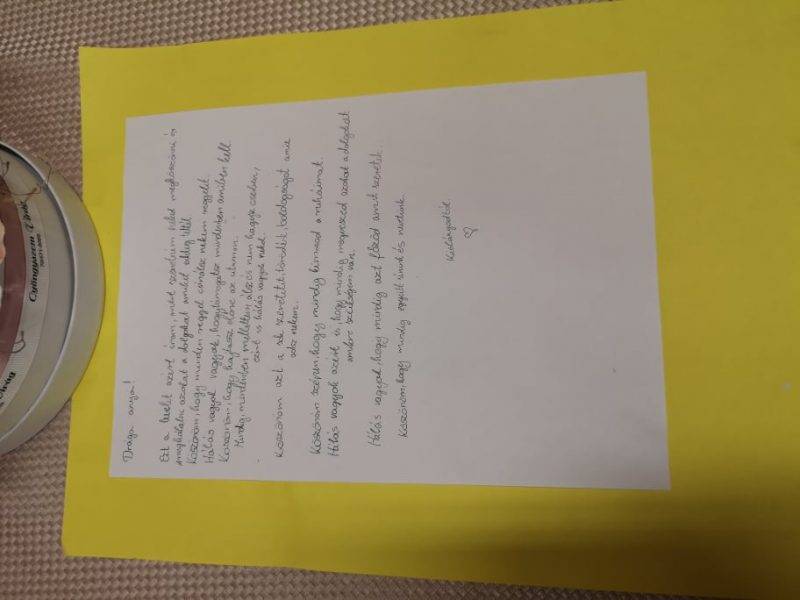 Drága anya!
Ezt a levelet azért írom, mert szeretném neked megköszönni és
meghálálni azokat a dolgokat amiket eddig tettél.
Köszönöm, hogy minden reggel csinálsz nekem reggelit.
Hálás vagyok vagyok, hogy támogatsz mindenben amiben kell.
Köszönöm, hogy hajtasz előre az utamon.
Mindig, mindenben mellettem állsz és nem hagysz cserben,
ezért is hálás vagyok neked.
Köszönöm azt a sok szeretetet, törődést, boldogságot amit
adsz nekem.
Köszönöm szépen, hogy mindig kimosod a ruháimat.
Hálás vagyok azért is, hogy mindig megveszed azokat a dolgokat
amikre szükségem van.
Hálás vagyok, hogy mindig azt főzöd amit szeretek.
Köszönöm, hogy mindig együtt sírunk és nevetünk.
Kislányodtól
♡
Gyöngyszem Virág